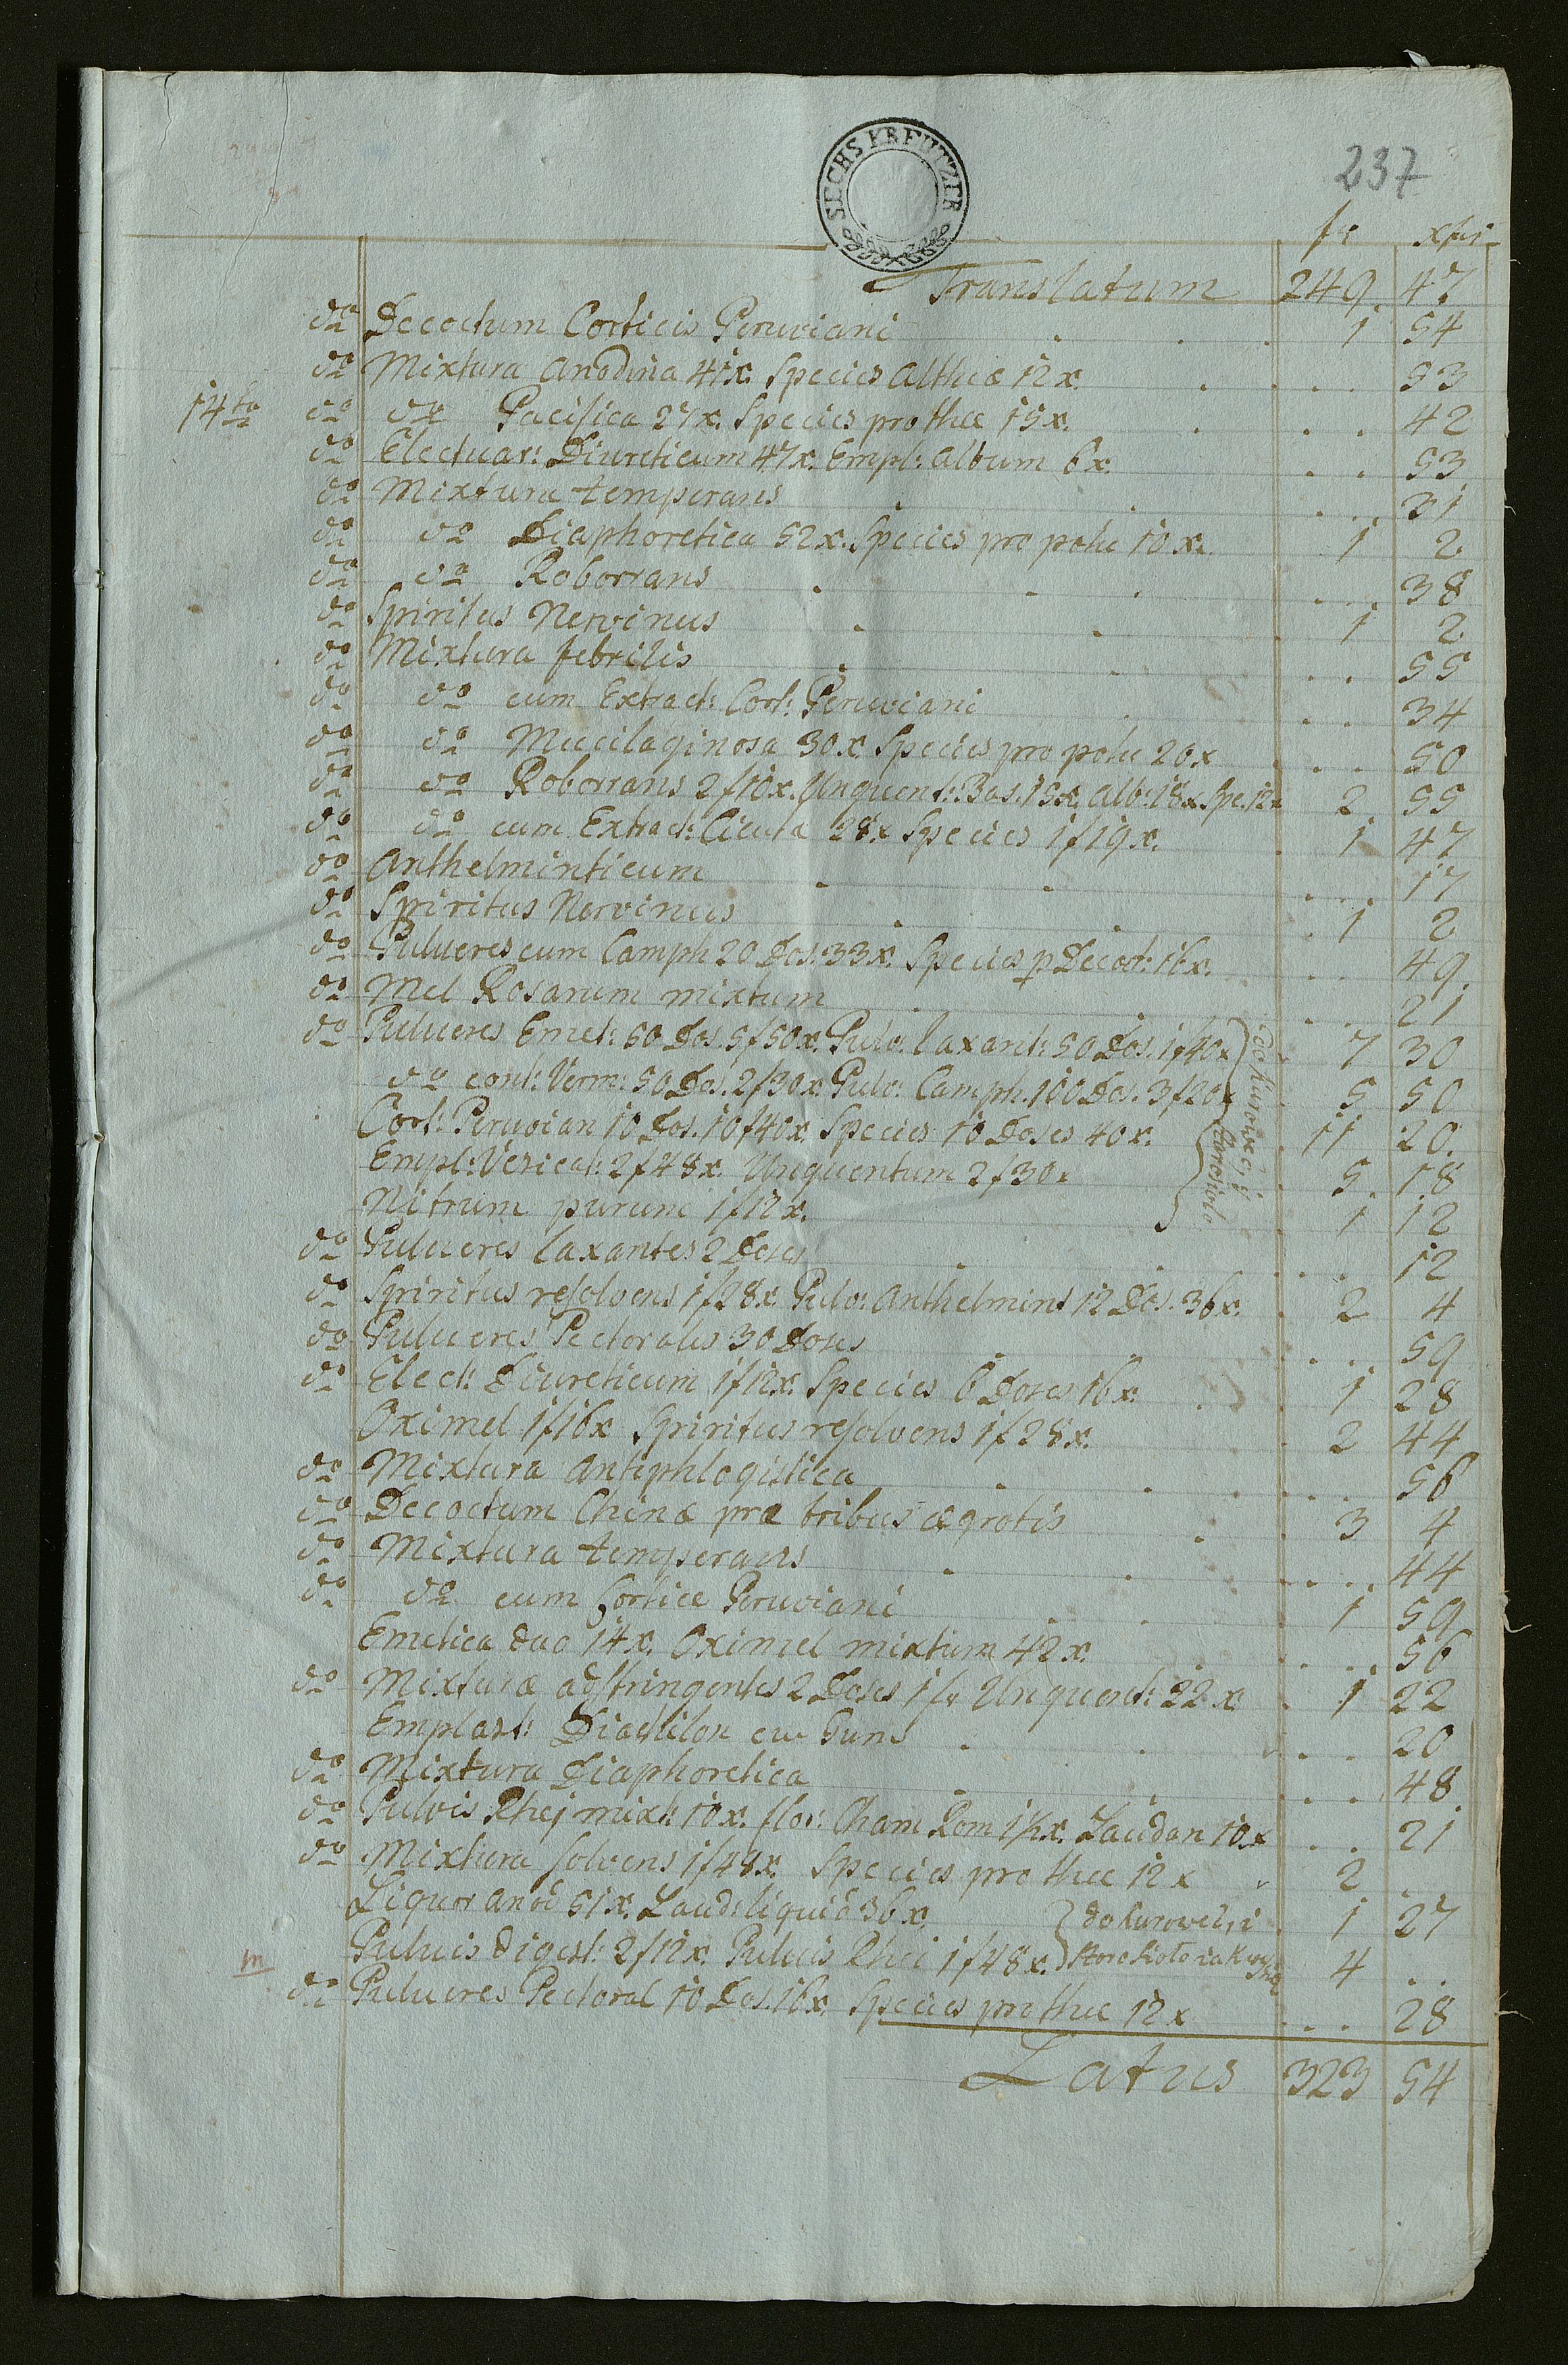 237
SECHS KREUTZER
fr xfer
Translatum 249. 47
do Decoctum Corticis Peruviani 1 54
do Mixtura anodina 41x. Species altheæ 12x. 53
14ta do do Pacifica 27x. Species pro thee 15x. 42
do Electuar: Diureticum 47x. Empl: album 6x. 53
do Mixtura temperans 31
do do Diaphoretica 52x. Species pro potu 10x. 1 2
do do Roborrans 38
do Spiritus Nervinus 1 2
do Mixtura febrilis 55
do do cum Extract: Cort: Peruviani 34
do do Mucilaginosa 30x. Species pro potu 20x 50
do do Roborrans 2f10x. Unguent: Bas. 15x. alb: 18x Spe. 12x 2. 55
do do cum Extract: Cicuta 28x Species 1f19x. 1. 47
do Anthelminticum 17
do Spiritus Nervinus 1 2
do Pulueres cum Camph 20 Dos. 33x. Species p Decoct: 16x. 49
do Mel Rosarum mixtum 21
do Pulueres Emet: 50 Dos. 5f50x. Pulv: laxant: 50 Dos. 1f40x 7 30
do cont: Verm: 50 Dos. 2f30x. Pulv: Camph. 100 Dos. 3f20x 5 50
Cort: Peruvian 10 Dos. 10f40x. Species 10 Doses 40x. 11 20.
Empl: Vesicat: 2f48x. Unguentum 2f30x 5. 18
Nitrum purum 1f12x. 1 12
do Kurowic, i
do Pulueres laxantes 2 Doses 12
do Spriritus resolvens 1f28x. Pulv: anthelmint 12 Dos. 36x. 2 4
do Pulueres Pectorales 30 Doses 59
do Elect: Diureticum 1f12x. Species 6 Doses 16x. 1 28
Oximel 1f16x Spriritus resolvens 1f28x. 2 44
do Mixtura antiphlogistica 56
do Decoctum Chinæ pro tribus ægrotis 3 4
do Mixtura temperans 44
do do cum Cortice Peruviani 1 59
Emetica duo 14x. Oximel mixtum 42x. 56
do Mixturæ adstringentes 2 Doses 1fr Unguent: 22x 1 22
Emplast: Diachilon cu Gum 20
do Mixtura Diaphoretica 48
do Pulvis Rhej mixt: 10x. flor: Cham Rom 1½x. Laudan 10x 21
do Mixtura solvens 1f48x. Species pro thee 12x 2 ..
Liquor anod 51x. Laud: liquid 36x. do Kurowic, i 1 27
Pulvis digest: 2f12x. Pulvis Rhei 1f48x. 4 ..
m
do Pulueres Pectoral 10 Dos. 16x. Species pro thee 12x 28
Latus 323 54